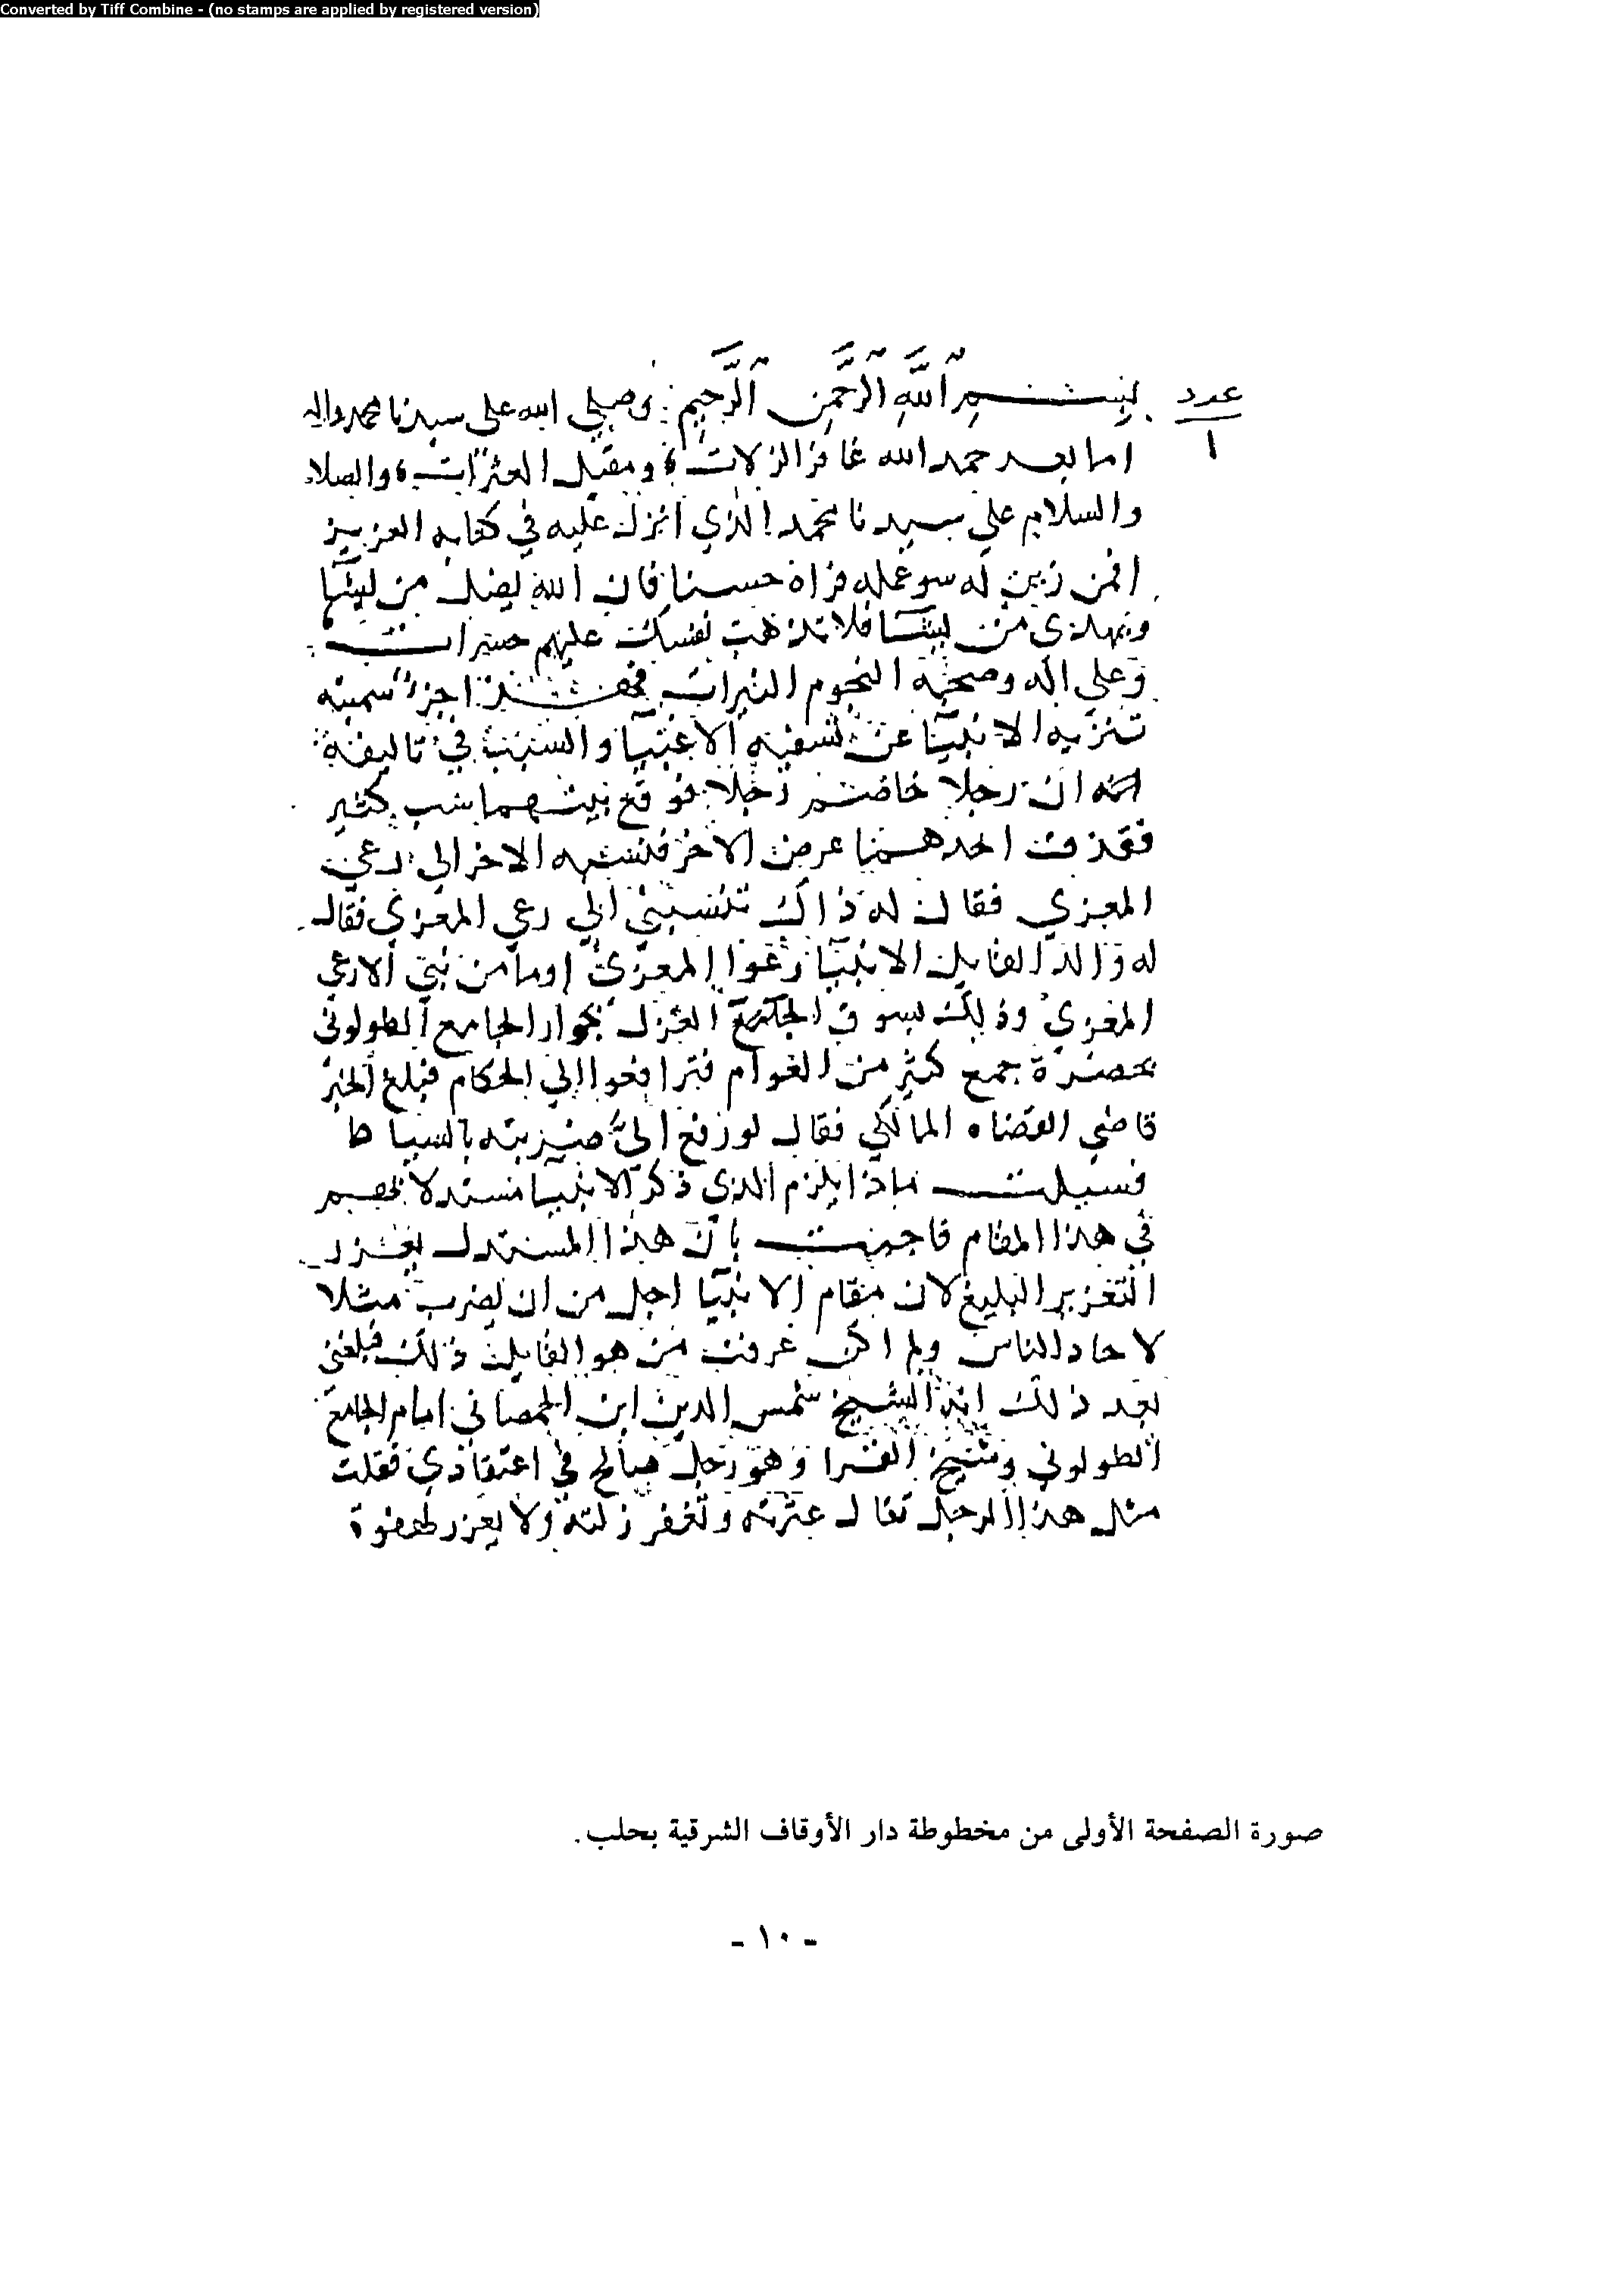 Converted by Tiff Combine - (no stamps are applied by registered version)
عدد
١
بسم الله الرحمن الرحيم وصلى الله على سيدنا محمد واله
اما بعد حمد الله غافر الزلات ومقيل العثرات والصلاه
والسلام على سيدنا محمد الذي انزل عليه في كتابه العزيز
افمن زين له سو عمله فراه حسنا فان الله يضل من يشا
ويهدى من يشا فلا تذهب نفسك عليهم حسرات
وعلى اله وصحبه النجوم النيرات فهذا جزء سميته
تنزيه الانبيا عن تسفيه الاغبيا والسبب في تاليفه
انه ان رجلا خاصم رجلا فوقع بينهما سب كثير
فقذف احدهما عرض الاخر فنسبه الاخر الى رعي
المعزي فقال له ذاك تنسبني الى رعي المعزي فقال
له والد القايل الانبيا رعوا المعزى اوما من نبي الا رعى
المعزي وذلك بسوق الغزل بجوار الجامع الطولوني
بحضرة جمع كثير من العوام فترافعوا الى الحكام فبلغ الخبر
قاضي القضاه المالكي فقال لو رفع الى ضربته بالسياط
فسيلت ماذا يلزم الذى ذكر الانبيا مستدلا بهم
في هذا المقام فاجبت بان هذا المستدل يعزر
التعزير البليغ لان مقام الانبيا اجل من ان يضرب مثلا
لاحاد الناس ولم اكن عرفت من هو القايل ذلك فبلغني
بعد ذلك انه الشيخ شمس الدين ابن الحمصاني امام الجامع
الطولوني وشيخ القرا وهو رجل صالح في اعتقادي فقلت
مثل هذا الرجل تقال عثرته وتغفر زلته ولا يعزر لهفوة
صورة الصفحة الأولى من مخطوطة دار الأوقاف الشرقية بحلب.
- ١٠ -